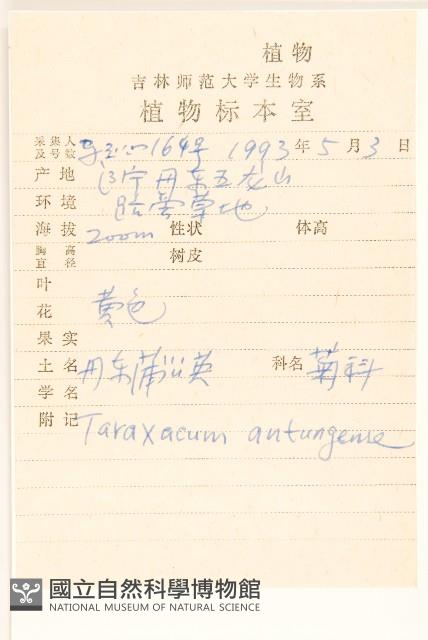 植物
吉林师范大学生物系
植物标本室
采集人及号数 164号 1993年5月3日
产地 辽宁丹东五龙山
环境 路旁草地
海拔 200m 性状 体高
胸高直径 树皮
叶
花 黄色
果实
土名 丹东蒲公英 科名 菊科
学名
附记 Taraxacum antungense
國立自然科學博物館
NATIONAL MUSEUM OF NATURAL SCIENCE